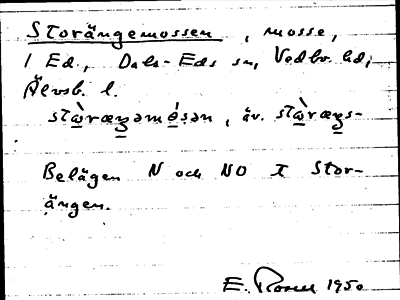 Storängemossen, mosse,
i Ed, Dals-Eds sn, Vedbo hd,
Älvsb. l.
stẁræŋəmósən, äv. stẁræŋs-
Belägen N och NO I Stor-
ängen.
E. 1950